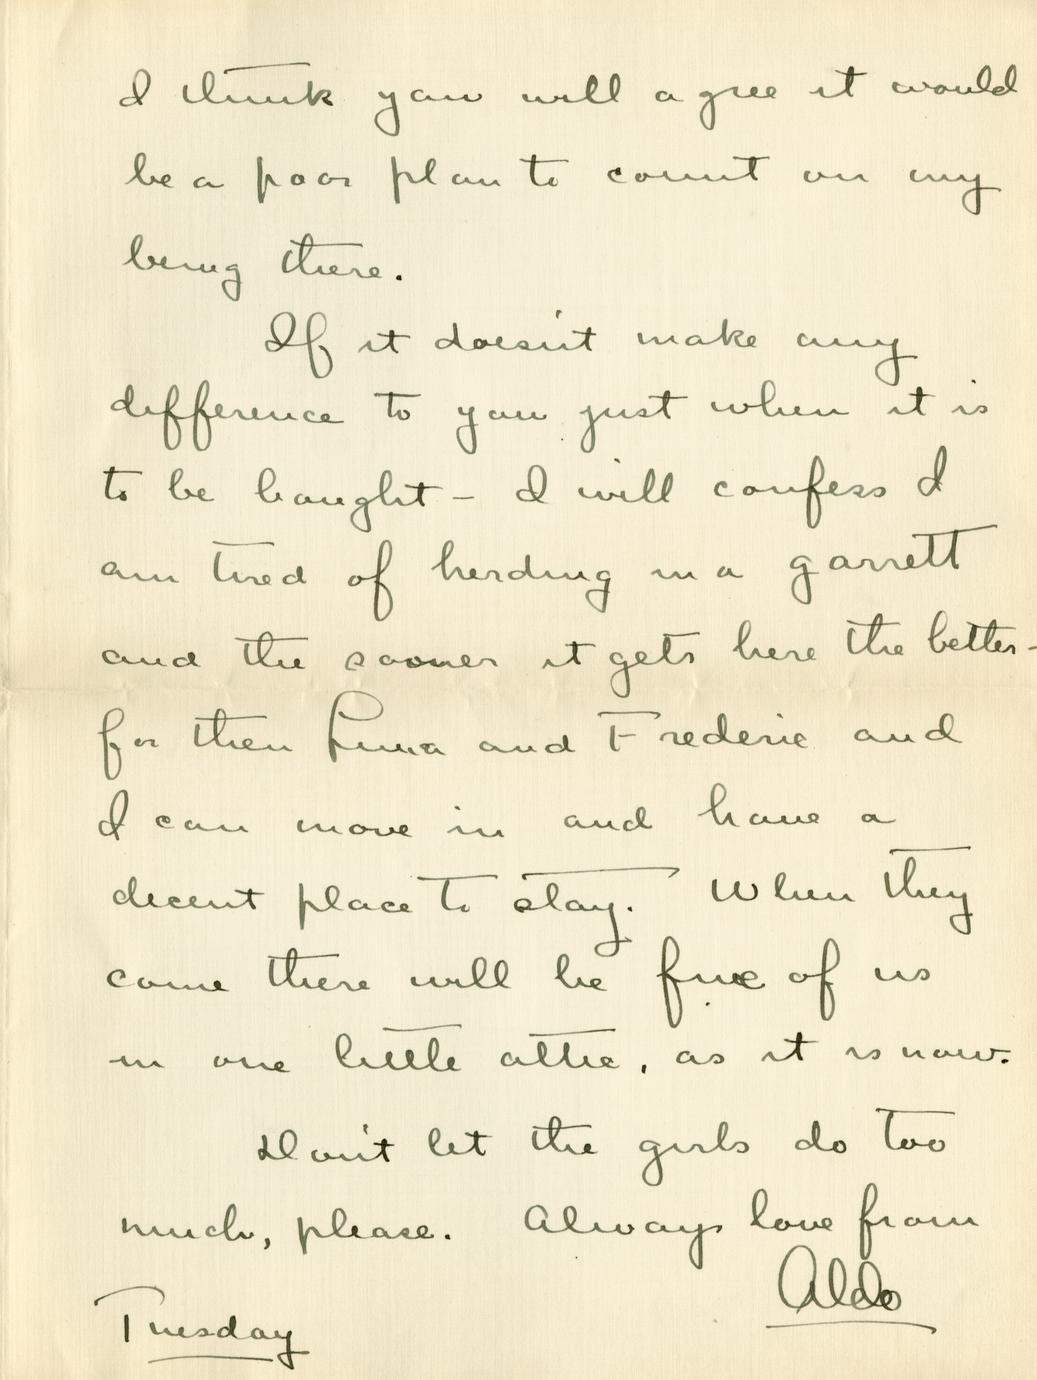 I think you will agree it would
be a poor plan to count on my
being there.
If it doesn't make any
difference to you just when it is
to be bought – I will confess I
am tired of herding in a garrett
and the sooner it gets here the better –
for then Luna and Frederic and
I can move in and have a
decent place to stay. When they
come there will be five of us
in one little attic, as it is now.
Don't let the girls do too
much, please. Always love from
Aldo
Tuesday